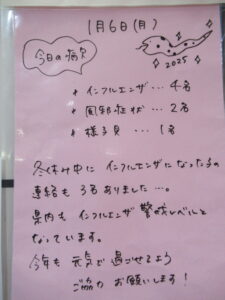 1月6日(月)
今日の病欠
2025
* インフルエンザ… 4名
* 風邪症状 … 2名
* 様子見 … 1名
冬休み中に インフルエンザになった子の
連絡も 3名ありました…。
県内も インフルエンザ 警戒レベルと
なっています。
今年も 元気で 過ごせるよう
ご協力 お願いします!